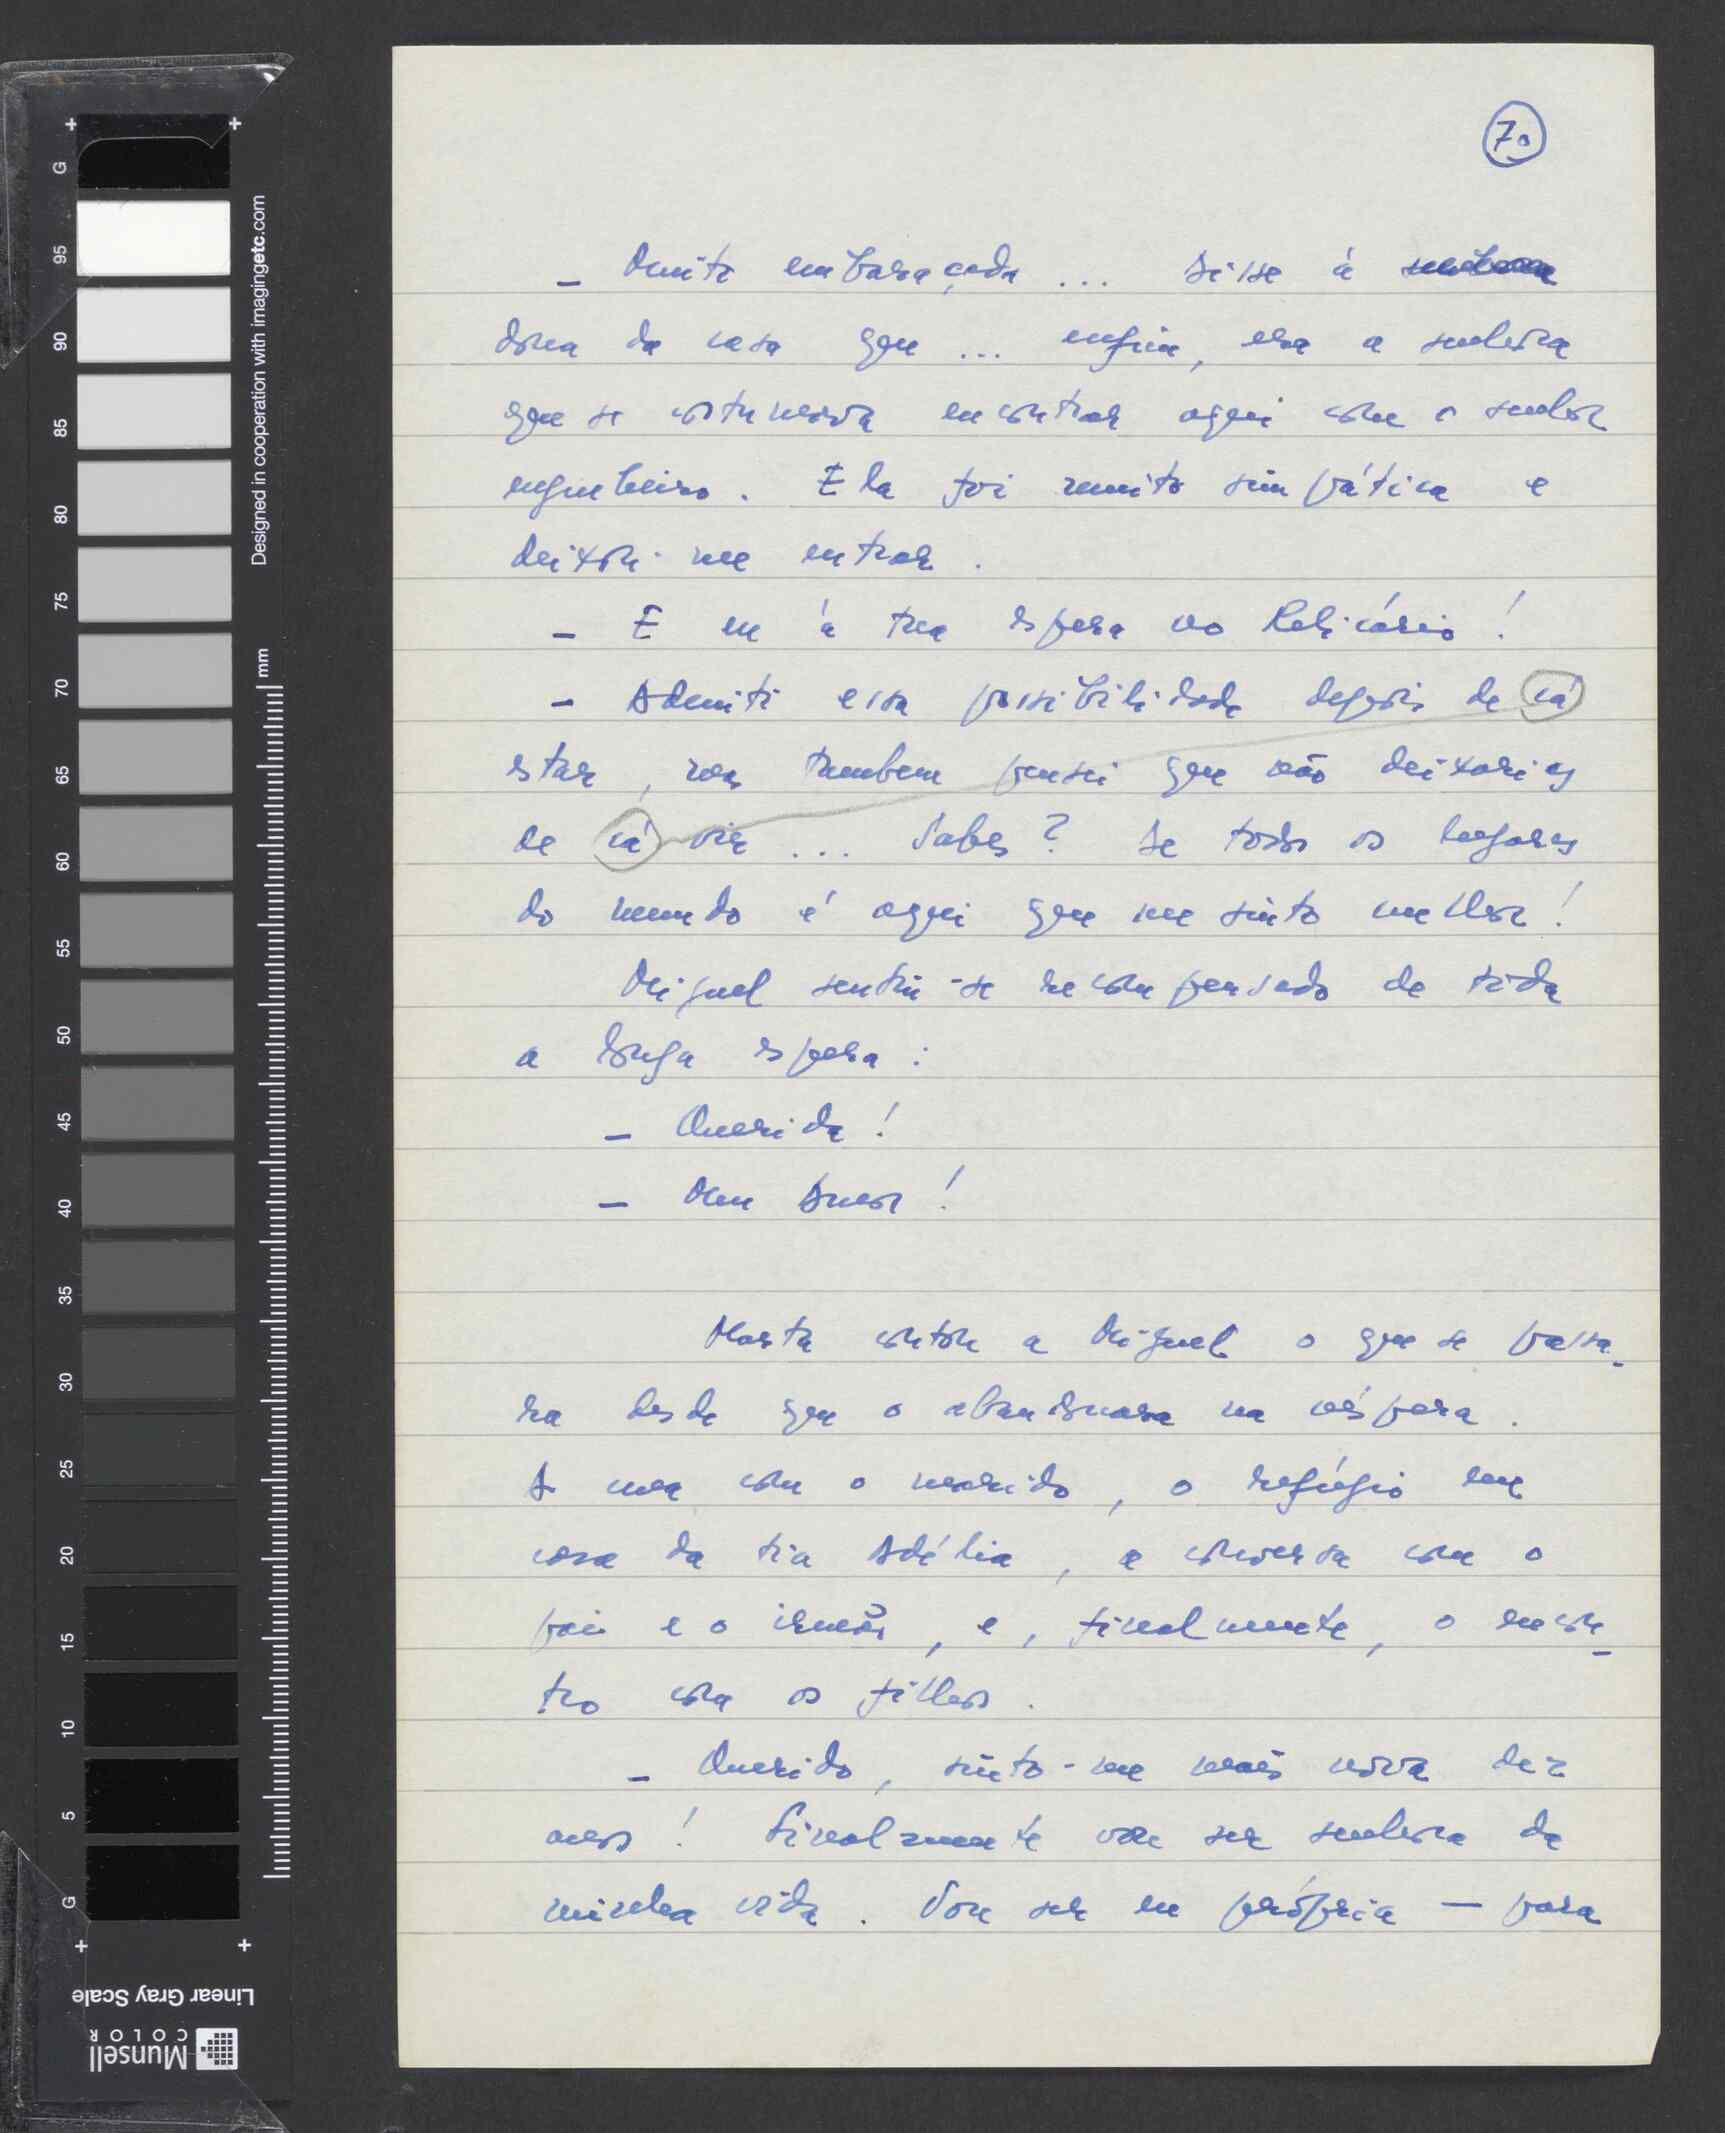 70
– Muito embaraçada ... Disse à senhora
dona da casa que ... enfim, era a senhora
que se costumava encontrar aqui com o senhor
engenheiro. Ela foi muito simpática e
deixou-me entrar.
– E eu à tua espera no Relicário!
– Admiti essa possibilidade depois de cá
estar, mas tambem pensei que não deixarias
de cá vir ... Sabes? De todos os lugares
do mundo é aqui que me sinto melhor!
Miguel sentiu-se recompensado de toda
a longa espera:
– Querida!
– Meu Amor!
Marta contou a Miguel o que se passa-
ra desde que o abandonara na véspera.
A cena com o marido, o refúgio em
casa da tia Adélia, a conversa com o
pai e o irmão, e, finalmente, o encon-
tro com os filhos.
– Querido, sinto-me mais nova dez
anos! Finalmente vou ser senhora da
minha vida. Vou ser eu própria — para
G 95 90 85 80 75 70 65 60 55 50 45 40 35 30 25 20 15 10 5 G
Designed in cooperation with imagingetc.com
mm
Linear Gray Scale
Munsell
COLOR